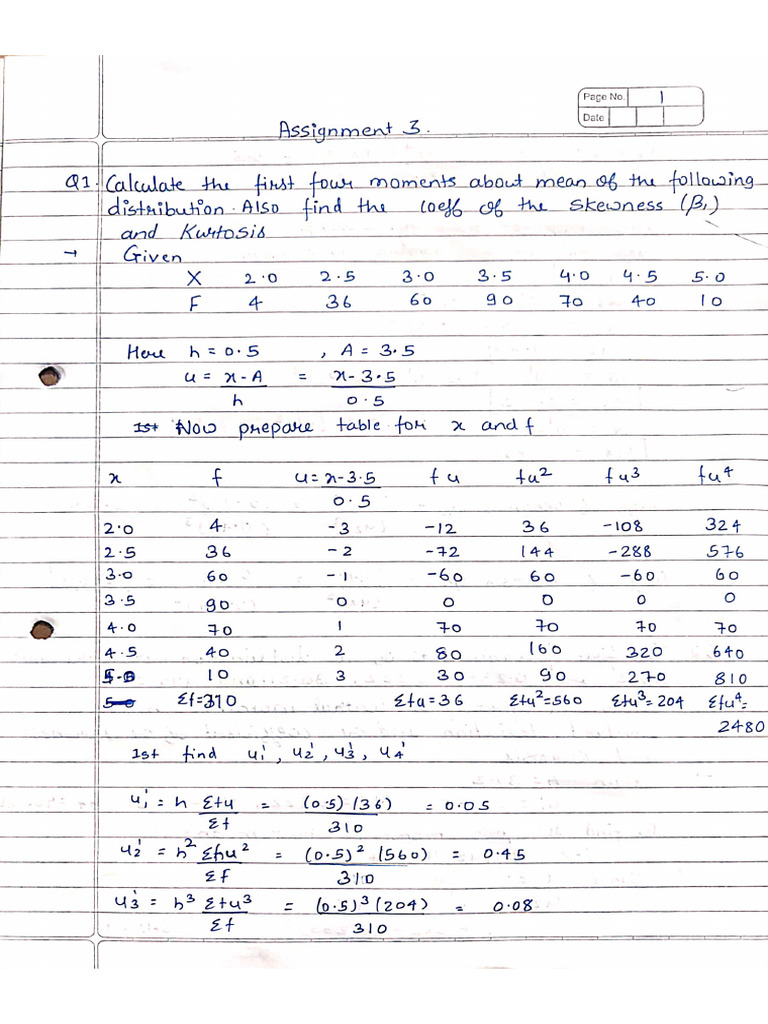 Page No. 1
Date
Assignment 3.
Q1. Calculate the first four moments about mean of the following
distribution. Also find the coeff of the skewness (β₁)
and Kurtosis
→ Given
X 2.0 2.5 3.0 3.5 4.0 4.5 5.0
F 4 36 60 90 70 40 10
Here h = 0.5 , A = 3.5
u = x-A = x-3.5
h 0.5
Now prepare table for x and f
x f u = x-3.5 fu fu² fu³ fu⁴
0.5
2.0 4 -3 -12 36 -108 324
2.5 36 -2 -72 144 -288 576
3.0 60 -1 -60 60 -60 60
3.5 90 0 0 0 0 0
4.0 70 1 70 70 70 70
4.5 40 2 80 160 320 640
5.0 10 3 30 90 270 810
Σf=310 Σfu=36 Σfu²=560 Σfu³=204 Σfu⁴=
2480
1st find u₁', u₂', u₃', u₄'
u₁' = h Σfu = (0.5)(36) = 0.05
Σf 310
u₂' = h² Σfu² = (0.5)² (560) = 0.45
Σf 310
u₃' = h³ Σfu³ = (0.5)³(204) = 0.08
Σf 310